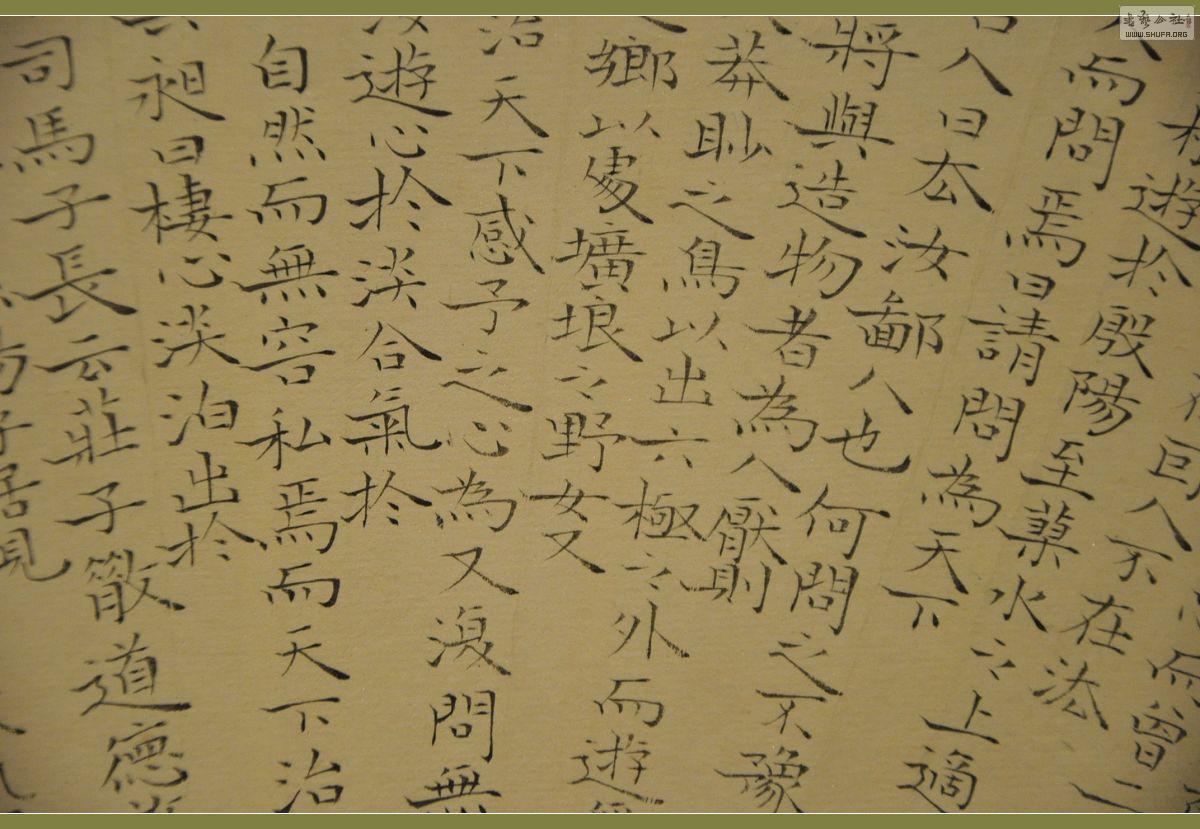 而曾
巨人不在法
根遊於殷陽至蘂水之上適
人而問焉曰請問為天下
人曰厺汝鄙人也何問之不豫
將與造物者為人厭則
莽眇之鳥以出六極之外而遊
鄉以處壙埌之野女又
治天下感予之心為又復問無
遊心於淡合氣於
自然而無容私焉而天下治
昶曰棲心淡泊出於
司馬子長云莊子散道德
子居見
書藝公社
WWW.SHUFA.ORG